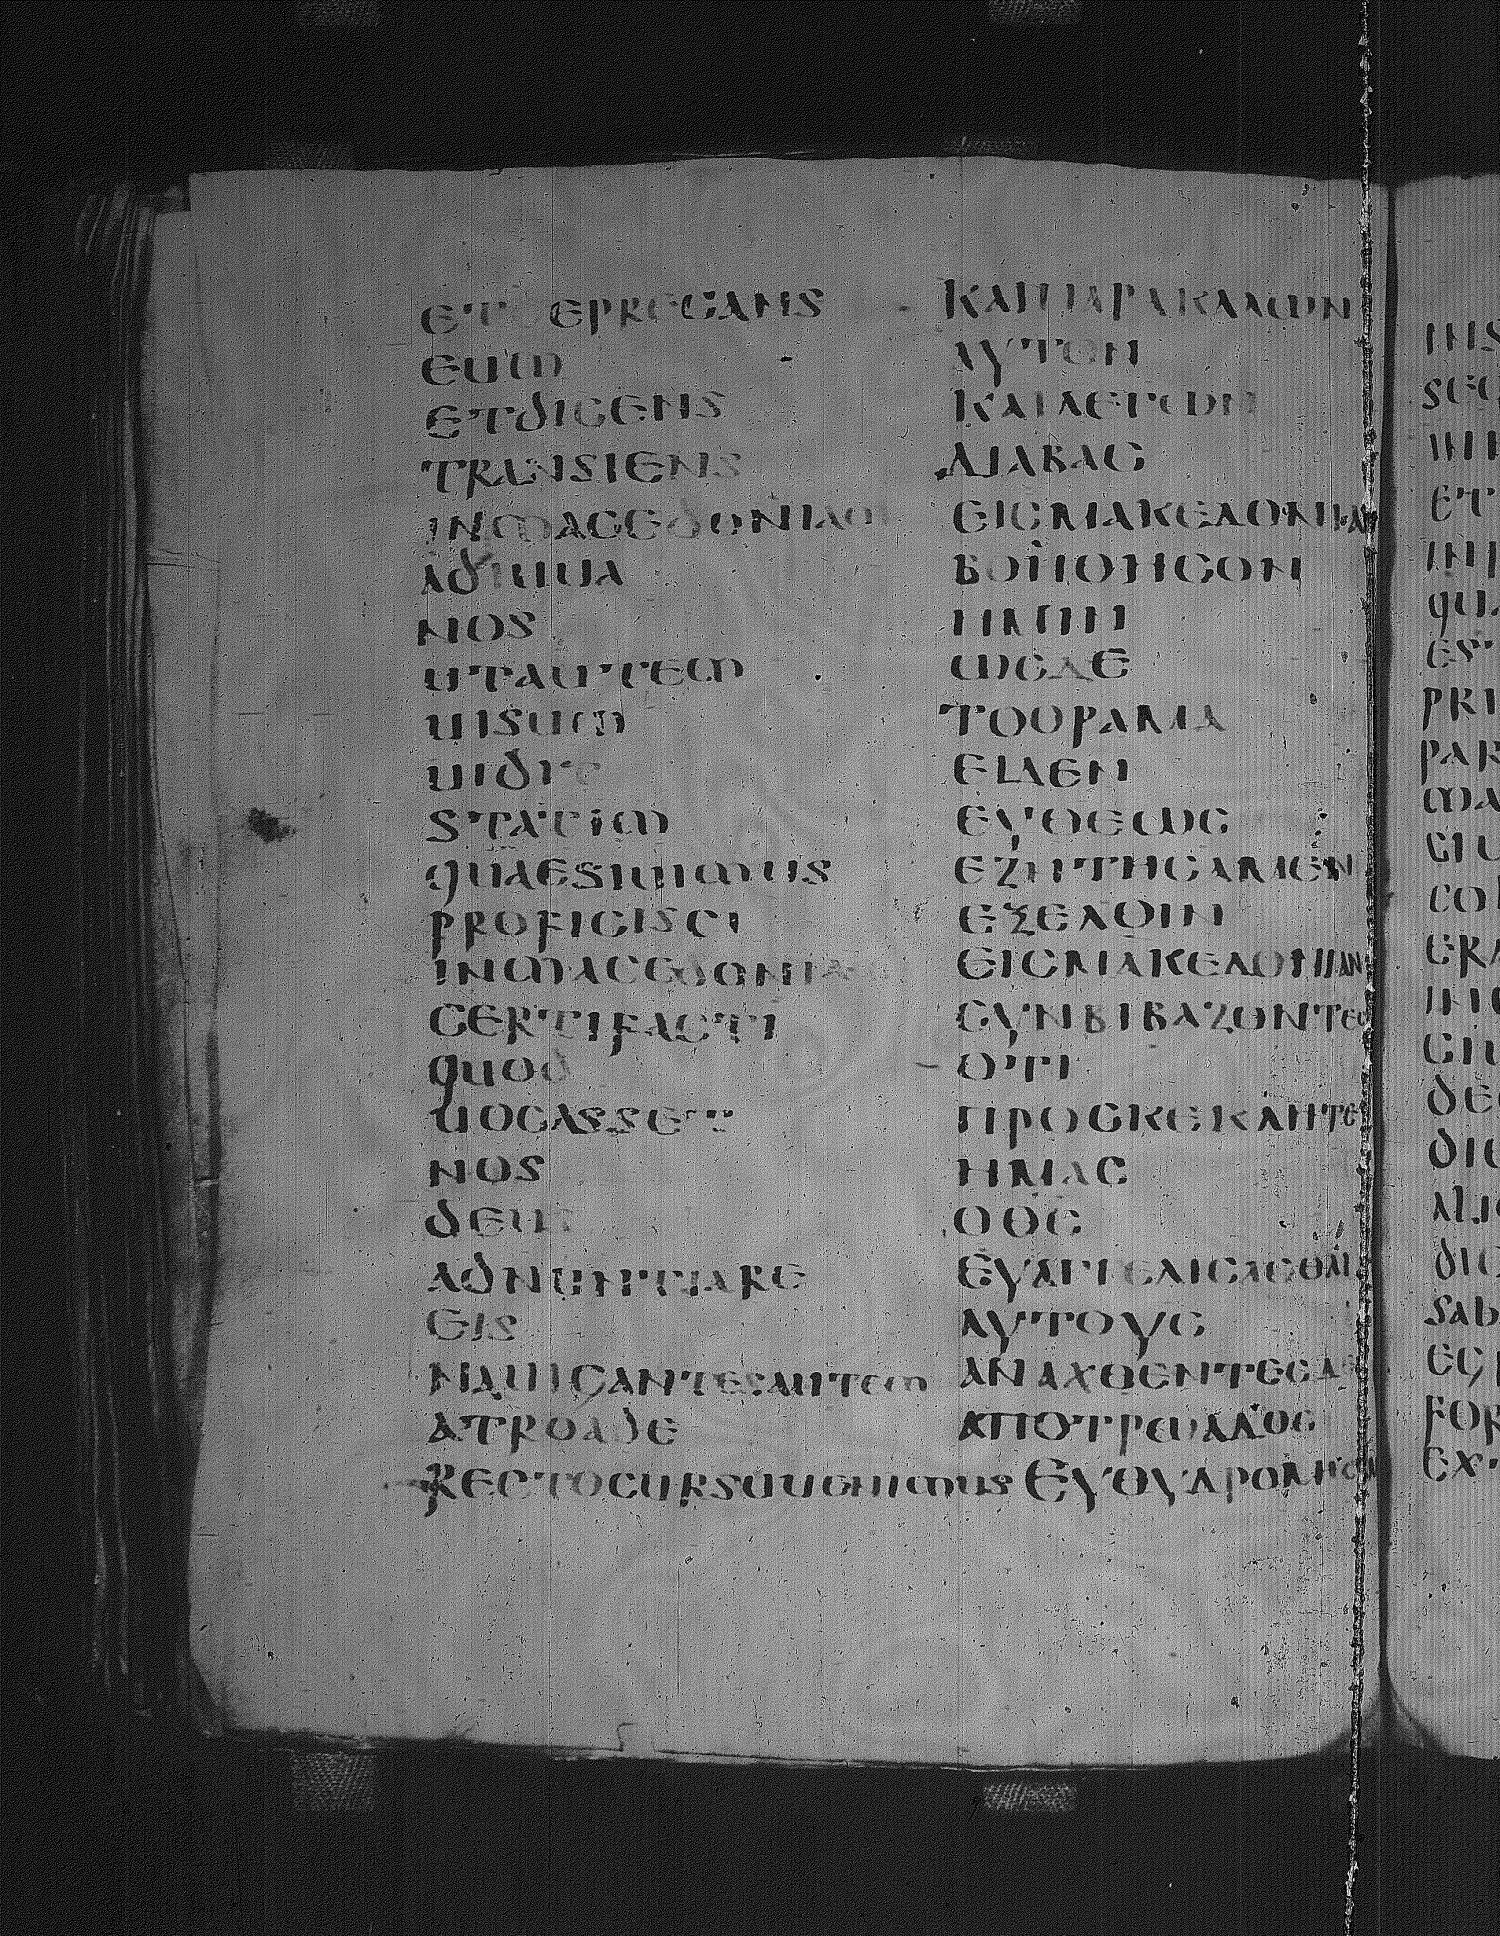 ETDEPRECANS
EUM
ETDICENS
TRANSIENS
INMACEDONIAM
ADIUUA
NOS
UTAUTEM
UISUM
UIDIT
STATIM
QUAESIUIMUS
PROFICISCI
INMACEDONIA
CERTIFACTI
QUOD
UOCASSET
NOS
DEUS
ADNUNTIARE
EIS
NAUIGANTESAUTEM
ATROADE
RECTOCURSUUENIMUS
ΚΑΙΠΑΡΑΚΑΛΩΝ
ΑΥΤΟΝ
ΚΑΙΛΕΓΩΝ
ΔΙΑΒΑϹ
ΕΙϹΜΑΚΕΔΟΝΙΑΝ
ΒΟΗΘΗϹΟΝ
ΗΜΙΝ
ΩϹΔΕ
ΤΟΟΡΑΜΑ
ΕΙΔΕΝ
ΕΥΘΕΩϹ
ΕΖΗΤΗϹΑΜΕΝ
ΕΞΕΛΘΙΝ
ΕΙϹΜΑΚΕΔΟΝΙΑΝ
ϹΥΝΒΙΒΑΖΟΝΤΕϹ
ΟΤΙ
ΠΡΟϹΚΕΚΛΗΤΕ
ΗΜΑϹ
ΟΘϹ
ΕΥΑΓΓΕΛΙϹΑϹΘΑΙ
ΑΥΤΟΥϹ
ΑΝΑΧΘΕΝΤΕϹΔΕ
ΑΠΟΤΡΩΑΔΟϹ
ΕΥΘΥΔΡΟΜΗϹΑΜ